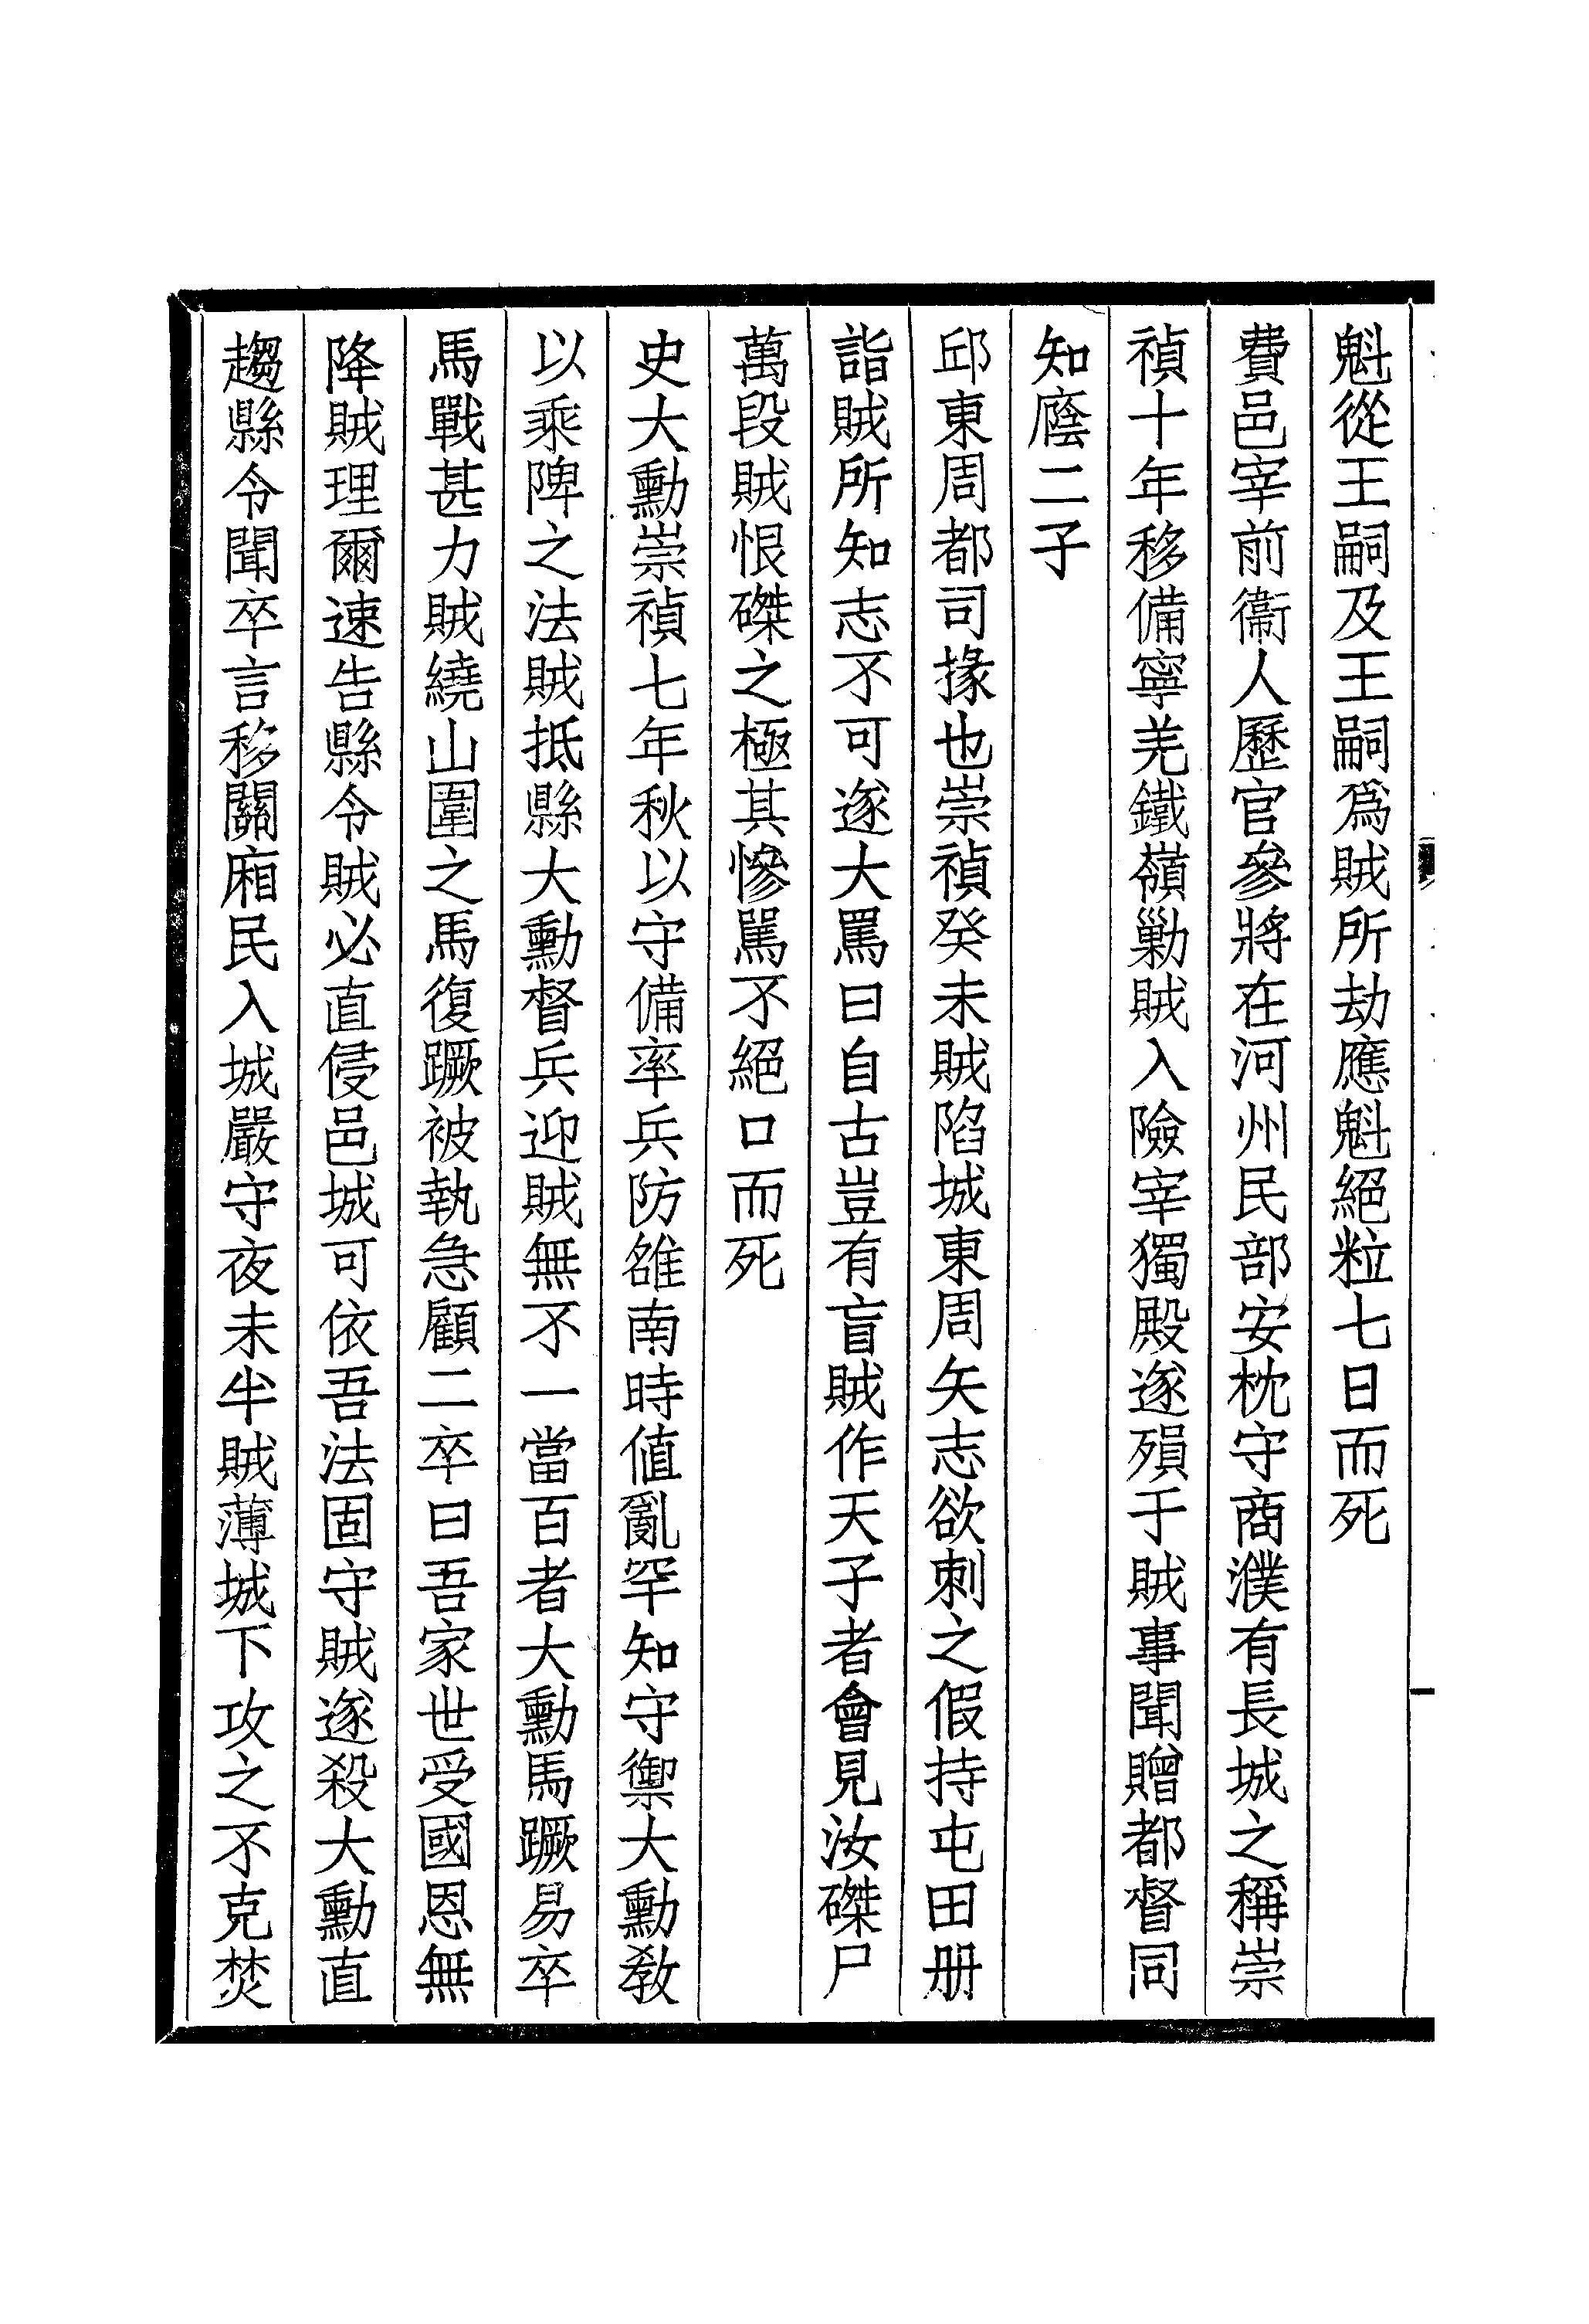 魁從王嗣及王嗣爲賊所劫應魁絕粒七日而死
費邑宰前衞人歷官參將在河州民部安枕守商濮有長城之稱崇
禎十年移備寧羌鐵嶺勦賊入險宰獨殿遂殞于賊事聞贈都督同
知廕二子
邱東周都司掾也崇禎癸未賊陷城東周矢志欲刺之假持屯田册
詣賊所知志不可遂大罵曰自古豈有盲賊作天子者會見汝磔尸
萬段賊恨磔之極其慘罵不絕口而死
史大勳崇禎七年秋以守備率兵防雒南時值亂罕知守禦大勳敎
以乘陴之法賊抵縣大勳督兵迎賊無不一當百者大勳馬蹶易卒
馬戰甚力賊繞山圍之馬復蹶被執急顧二卒曰吾家世受國恩無
降賊理爾速告縣令賊必直侵邑城可依吾法固守賊遂殺大勳直
趨縣令聞卒言移關廂民入城嚴守夜未半賊薄城下攻之不克焚